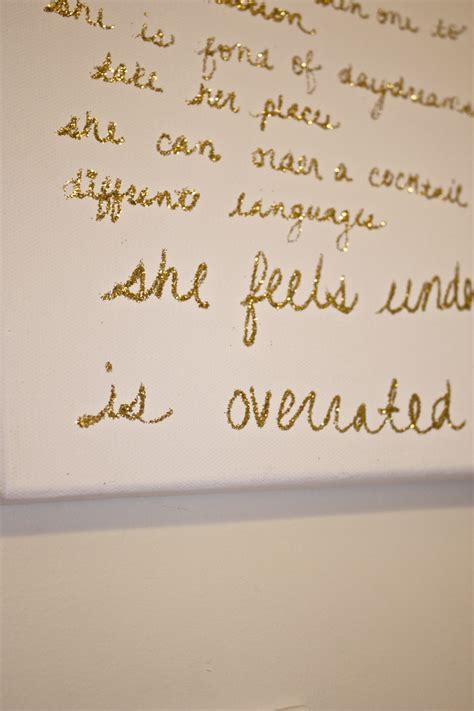 one to
she is fond of daydreams
take her places
she can order a cocktail
diffrent languages
she feels unde
is overrated